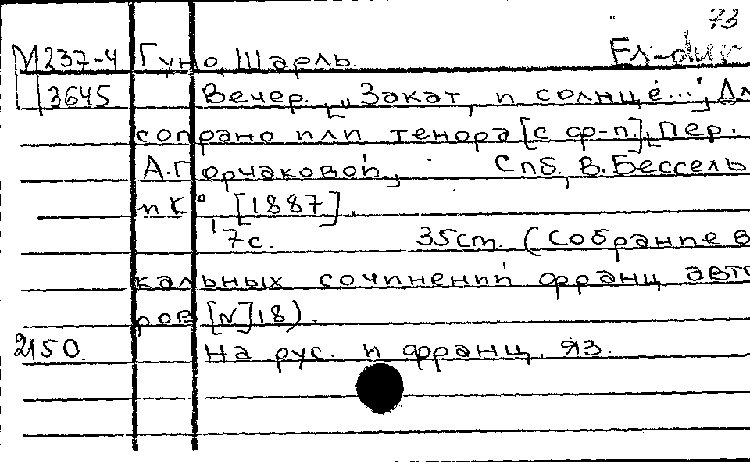 73
М237-4 Гуно, Шарль. Es-dur
3645 Вечер. ["Закат, и солнце..."], Дл
сопрано или тенора [с ф-п.], Пер.
А. Горчаковой, Спб, В. Бессель
и К°, [1887].
7с. 35cm. (Собрание во
кальных сочинений франц авто
ров [N] 18).
2150 На рус. и франц. яз.